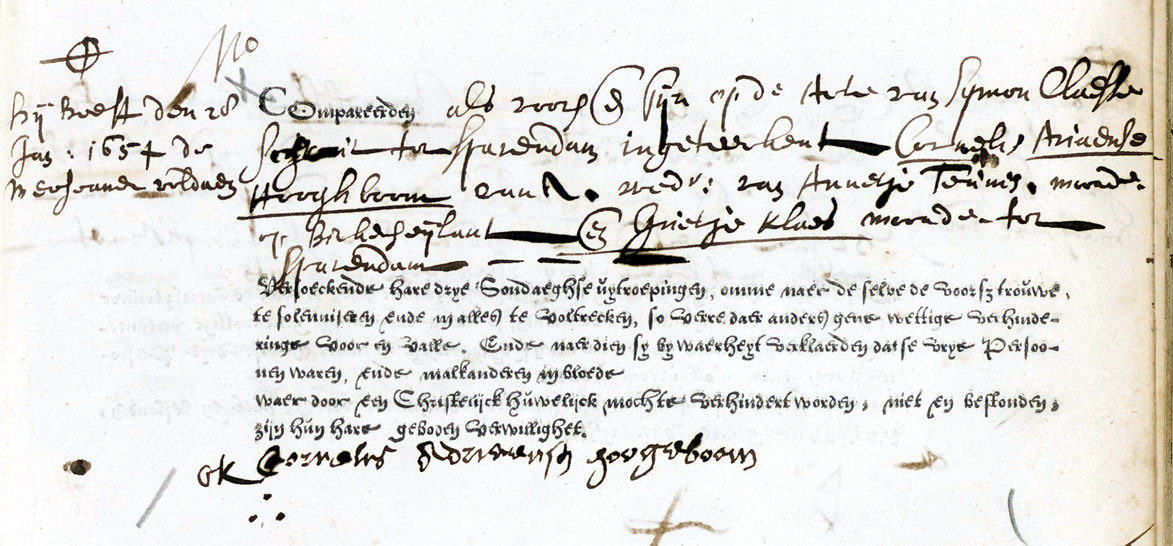 No
bij Brieff den 28
Jan: 1654 de
Compareerden als voorsz en sijn op de Acte van Symon Claesse
Schout tot Sparendam ingeteekent Cornelis Ariaense
Hooghboom van A. wedr: van Annetje Teunis. woonde.
op Bickerseylant en Grietje Klaes woonde tot
Sparendam
Versoeckende hare drye Sondaeghse uytroepingen, omme naer de selve de voorsz trouwe,
te solemniseren ende in alles te voltrecken, so verre daer anders gene wettige verhinde-
ringe voor en valle. Ende naer dien sy by waerheyt verklaerden dat se vrye Persoo-
nen waren, ende malkanderen in bloede
waer door een Christelijck huwelijck mochte verhindert worden, niet en bestonden,
zijn hun hare geboden verwillighet.
Cornelis Adriaensz hoogeboom